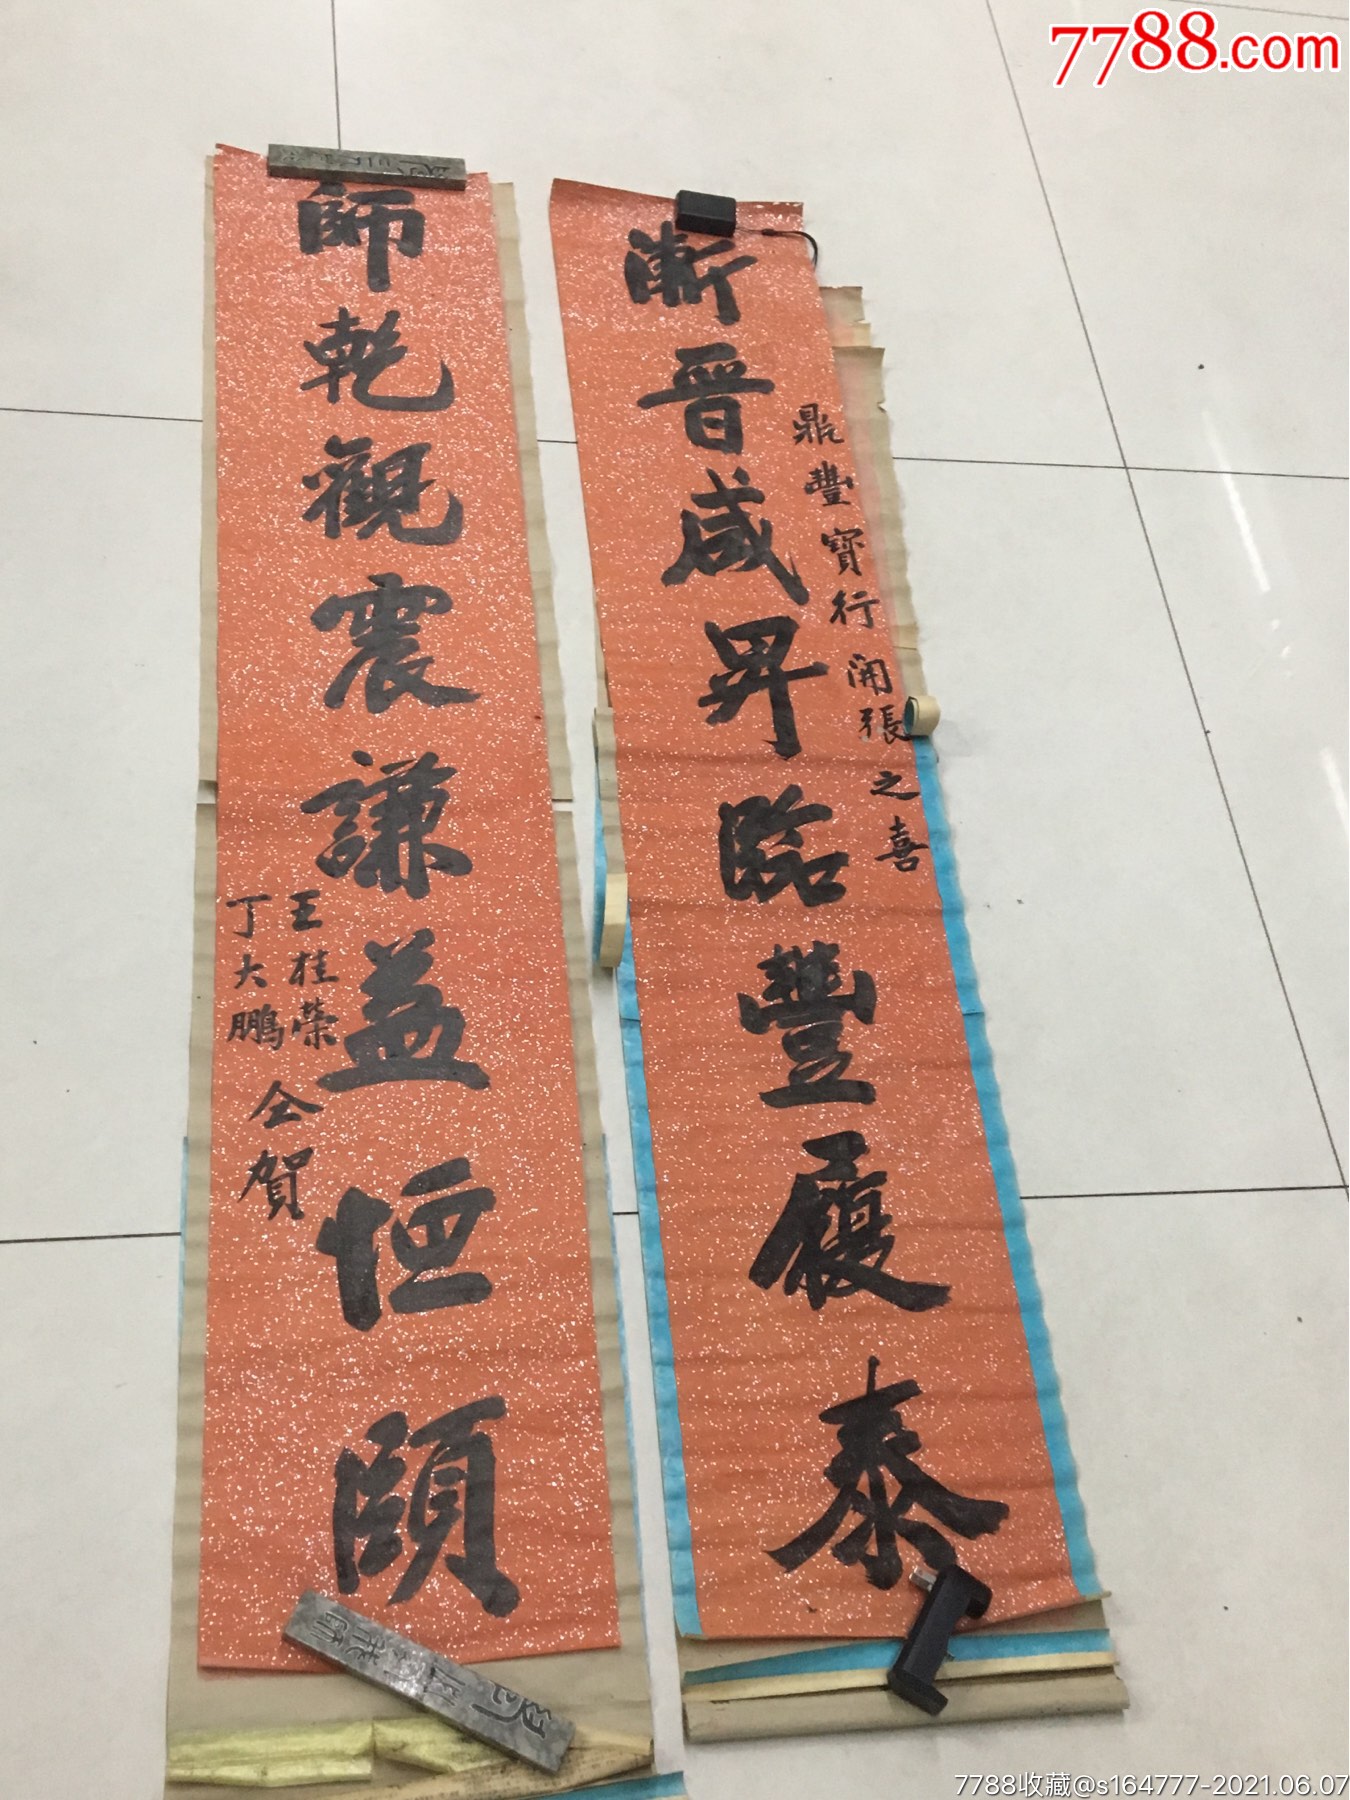 7788.com
鼎豐寶行開張之喜
漸晉咸昇臨豐履泰
師乾觀震謙益恒頤
王桂榮
丁大鵬
仝賀
7788收藏@s164777-2021.06.07